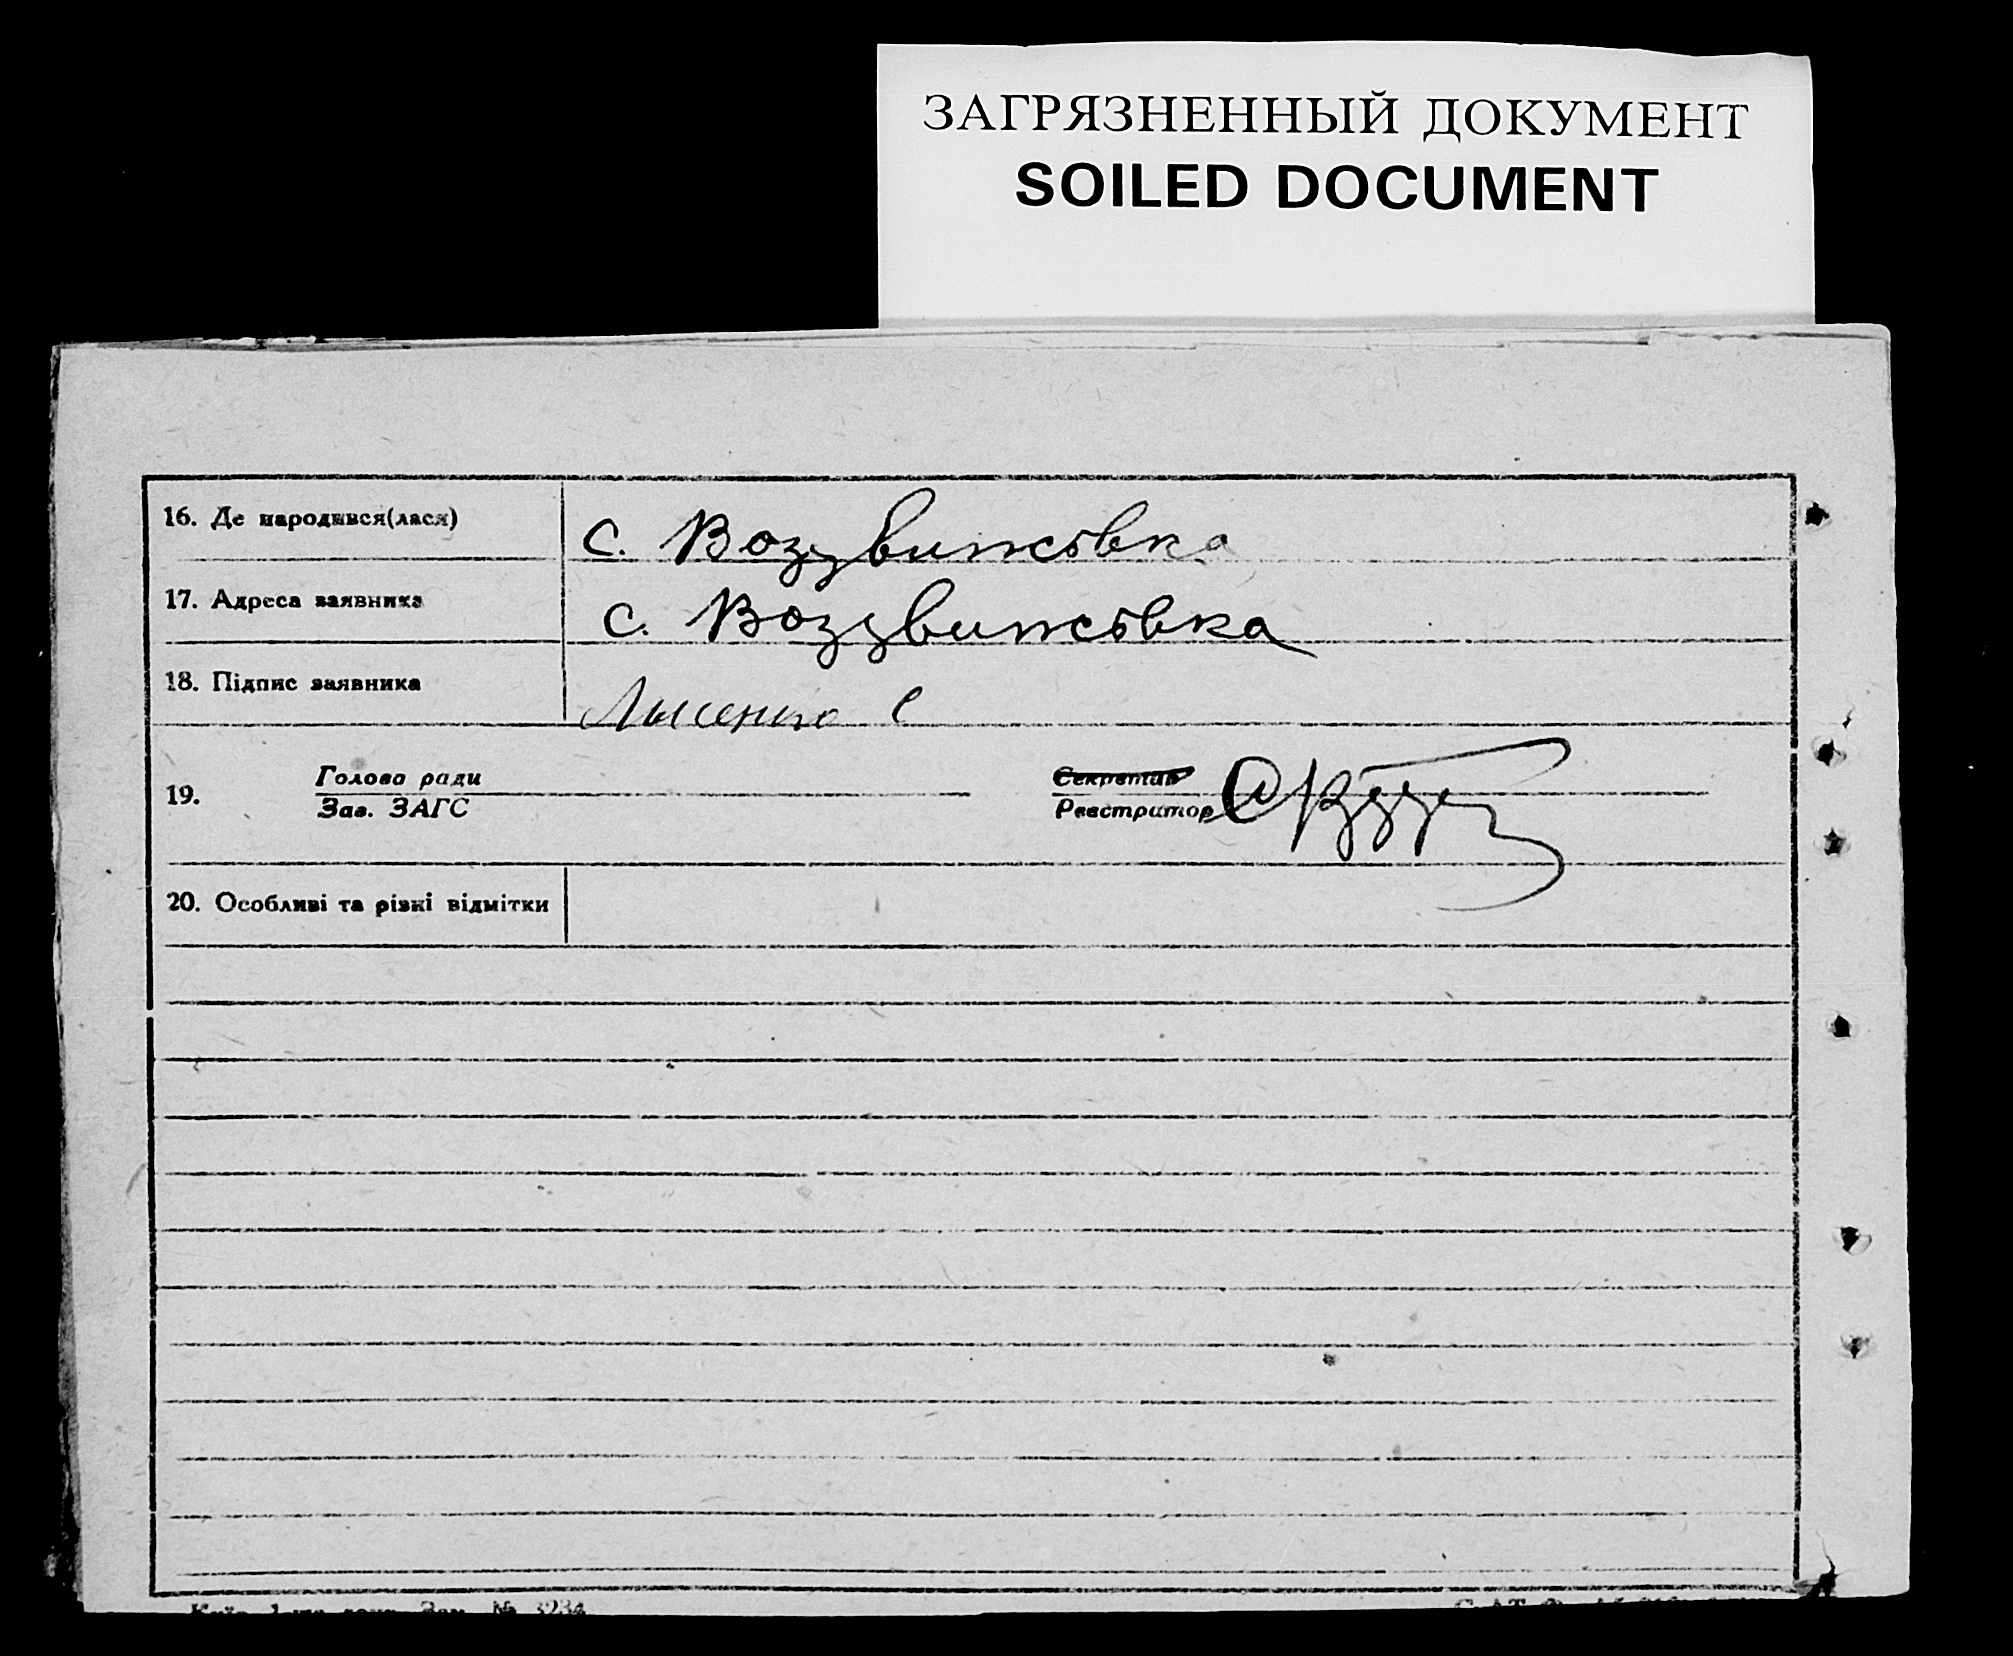 ЗАГРЯЗНЕННЫЙ ДОКУМЕНТ
SOILED DOCUMENT
16. Де народився(лася) с. Воздвижовка
17. Адреса заявника с. Воздвижовка
18. Підпис заявника Лисенко С
19. Голова ради Секретар
Зав. ЗАГС Реєстратор
20. Особливі та різні відмітки
Зам. № 3234